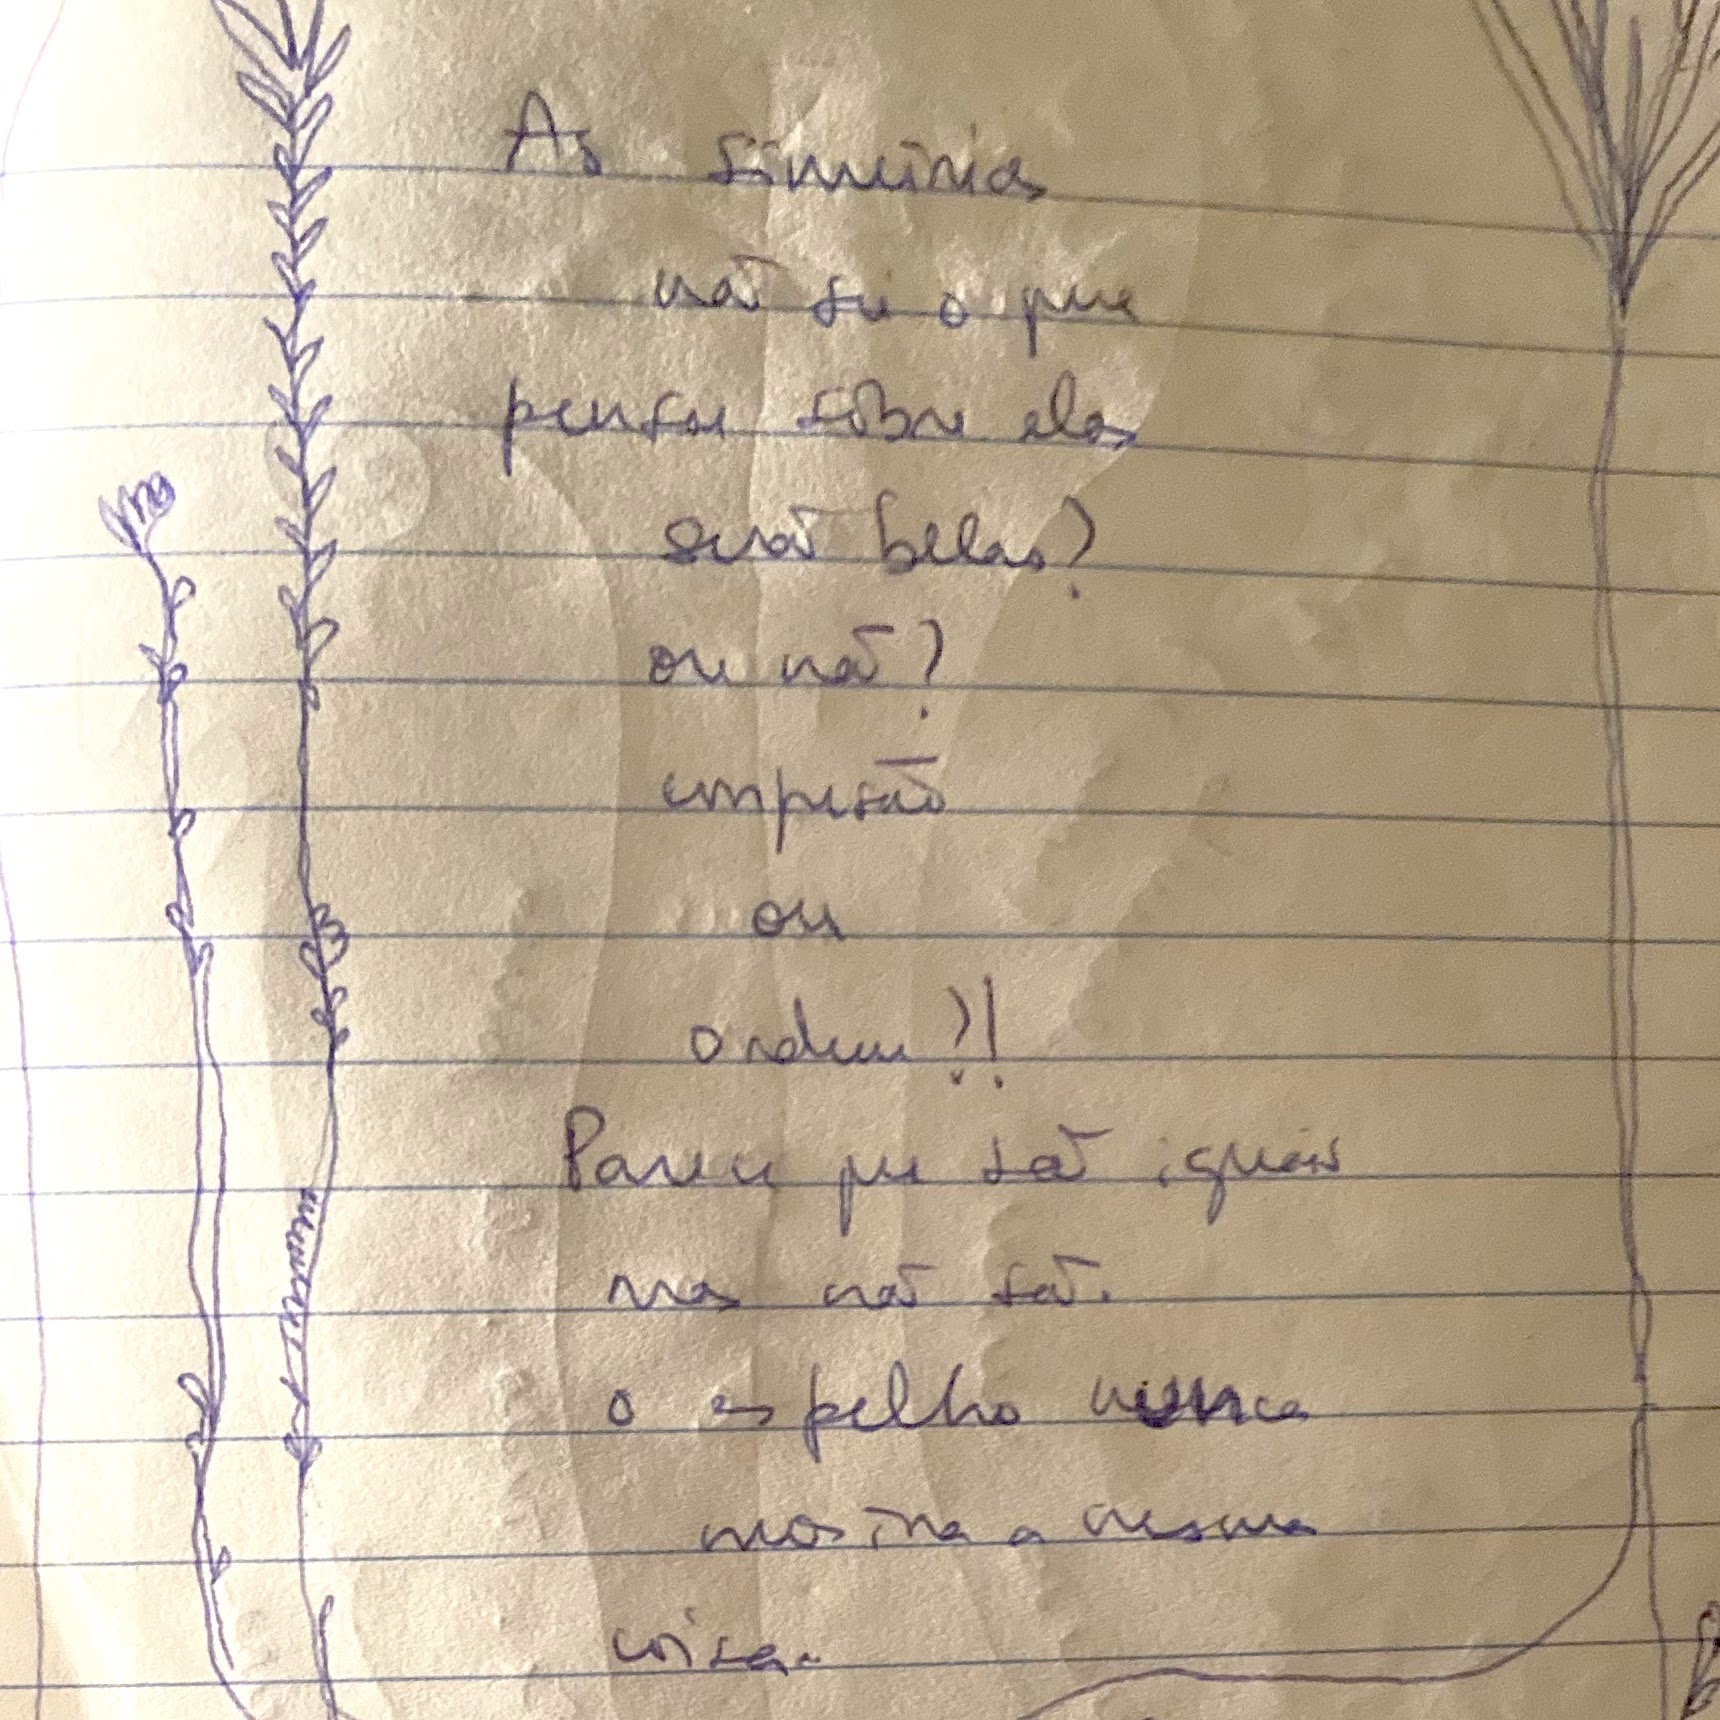 As simetrias
não sei o que
pensar sobre elas
serão belas?
ou não?
ou
ordem?!
Parece que são iguais
mas não são.
o espelho nunca
mostra a mesma
coisa.